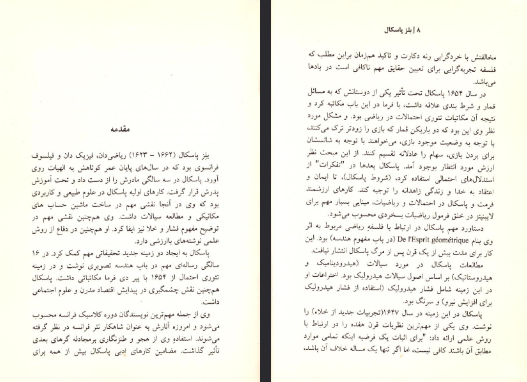 مقدمه
بلز پاسکال (۱۶۶۲ - ۱۶۲۳) ریاضی‌دان، فیزیک دان و فیلسوف
فرانسوی بود که در سال‌های پایان عمر کوتاهش به الهیات روی
آورد. پاسکال در سه سالگی مادرش را از دست داد و تحت آموزش
پدرش قرار گرفت. کارهای اولیه پاسکال در علوم طبیعی و کاربردی
بود که وی در آنجا نقشی مهم در ساخت ماشین حساب های
مکانیکی و مطالعه سیالات داشت. وی هم‌چنین نقشی مهم در
توضیح مفهوم فشار و خلا نیز ایفا کرد. او هم‌چنین در دفاع از روش
علمی نوشته‌های باارزشی دارد.
پاسکال به ایجاد دو زمینه جدید تحقیقاتی مهم کمک کرد. در ۱۶
سالگی رساله‌ای مهم در باب هندسه تصویری نوشت و در زمینه
تئوری احتمال از ۱۶۵۴ با پیر دی فرما مکاتباتی داشت. پاسکال
هم‌چنین نقش چشمگیری در پیدایش اقتصاد مدرن و علوم اجتماعی
داشت.
وی از جمله مهم‌ترین نویسندگان دوره کلاسیک فرانسه محسوب
می‌شود و امروزه آثارش به عنوان شاهکار نثر فرانسه در نظر گرفته
می‌شوند. استفاده وی از هجو و طنزنگاری برمجادله گرهای بعدی
تأثیر گذاشت. مضامین کارهای ادبی پاسکال بیش از همه برای
۸ | بلز پاسکال
مخالفتش با خردگرایی رنه دکارت و تاکید هم‌زمان براین مطلب که
فلسفه تجربه‌گرایی برای تعیین حقایق مهم ناکافی است در یادها
می‌باشد.
در سال ۱۶۵۴ پاسکال تحت تأثیر یکی از دوستانش که به مسائل
قمار و شرط بندی علاقه داشت، با فرما در این باب مکاتبه کرد و
نتیجه آن مکاتبات تئوری احتمالات در ریاضی بود. و مشکل مورد
نظر وی این بود که دو بازیکن قمار که بازی را زودتر ترک می‌کنند،
با توجه به وضعیت موجود بازی، می‌خواهند با توجه به شانسشان
برای بردن بازی، سهام را عادلانه تقسیم کنند. از این مبحث نظر
ارزش مورد انتظار بوجود آمد. پاسکال بعدها در "تفکرات" از
استدلال‌های احتمالی استفاده کرد، (شروط پاسکال)، تا ایمان و
اعتقاد به خدا و زندگی زاهدانه را توجیه کند. کارهای ارزشمند
فرمت و پاسکال در احتمالات و ریاضیات، مبنایی بسیار مهم برای
لایبنیتز در خلق فرمول ریاضیات بسخردی محسوب می‌شود.
دستاورد مهم پاسکال در ارتباط با فلسفهٔ ریاضی مربوط به اثر
وی بنام De l'Esprit géométrique (در باب مفهوم هندسه) بود. این
کار برای مدت بیش از یک قرن پس از مرگ پاسکال انتشار نیافت.
مطالعات پاسکال در مورد سیالات (هیدرودینامیک و
هیدروستاتیک) بر اساس اصول سیالات هیدرولیک بود. اختراعات او
در این زمینه شامل فشار هیدرولیک (استفاده از فشار هیدرولیک
برای افزایش نیرو) و سرنگ بود.
پاسکال در این زمینه در سال ۱۶۴۷(تجربیات جدید از خلاء) را
نوشت. وی یکی از مهم‌ترین نظریات قرن هفده را در ارتباط با
روش علمی ارائه داد: "برای اثبات یک فرضیه اینکه تمامی موارد
مطابق آن باشند کافی نیست، اما اگر تنها یک مسأله خلاف آن باشد،